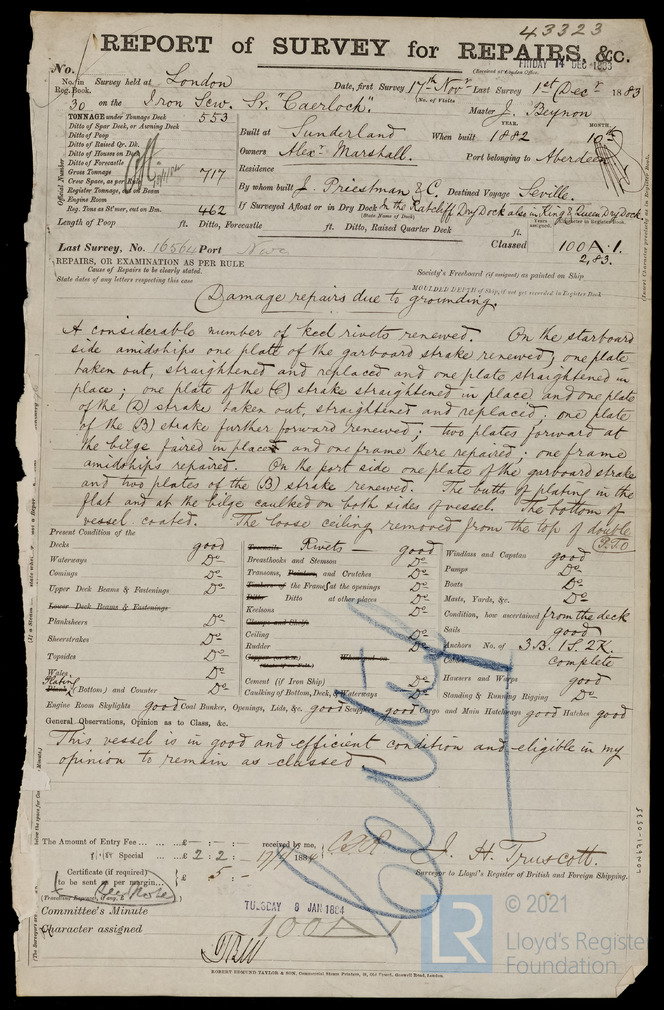 43323
REPORT of SURVEY for REPAIRS, &c.
FRIDAY 14 DEC 1883
No.
(Received at London Office,
No. in Survey held at London Date, first Survey 17th Novr Last Survey 1st Decr 1883
Reg. Book. (No. of Visits
30 on the Iron Scw. Sr. "Caerloch". Master J. Beynon
TONNAGE under Tonnage Deck 553
Ditto of Spar Deck, or Awning Deck
Ditto of Poop
Ditto of Raised Qr. Dk.
Ditto of Houses on Deck
Ditto of Forecastle
Gross Tonnage 717
Crew Space, as per Rule
Register Tonnage, cut on Beam
Engine Room
Reg. Tons as St'mer, cut on Bm. 462
Official Number
YEAR. MONTH.
Built at Sunderland When built 1882 10th
Owners Alexr Marshall. Port belonging to Aberdeen
Residence
By whom built J. Priestman & C. Destined Voyage Seville.
If Surveyed Afloat or in Dry Dock In the Ratcliff Dry Dock also in King & Queen Dry Dock.
(State Name of Dock)
Length of Poop ft. Ditto, Forecastle ft. Ditto, Raised Quarter Dock ft.
Last Survey, No. 16564 Port Nwc Classed 100 A.1.
2,83.
REPAIRS, OR EXAMINATION AS PER RULE
Cause of Repairs to be clearly stated.
State dates of any letters respecting this case
Society's Freeboard (if assigned) as painted on Ship
MOULDED DEPTH of Ship, if not yet recorded in Register Book
Damage repairs due to grounding.
A considerable number of keel rivets renewed. On the starboard
side amidships one plate of the garboard strake renewed; one plate
taken out, straightened and replaced and one plate straightened in
place; one plate of the (C) strake straightened in place, and one plate
of the (D) strake taken out, straightened and replaced; one plate
of the (B) strake further forward renewed; two plates forward at
the bilge faired in place and one frame there repaired; one frame
amidships repaired. On the port side one plate of the garboard strake
and two plates of the (B) strake renewed. The butts of plating in the
flat and at the bilge caulked on both sides of vessel. The bottom of
vessel coated. The loose ceiling removed from the top of double
P.T.O
Present Condition of the
Decks good
Waterways Do
Comings Do
Upper Deck Beams & Fastenings Do
Lower Deck Beams & Fastenings
Planksheers Do
Sheerstrakes Do
Topsides Do
Wales Do
Plating
Plank (Bottom) and Counter Do
Treenails Rivets good
Breasthooks and Stemson Do
Transoms, Pointers, and Crutches Do
Timbers of the Frames at the openings Do
Ditto Ditto at other places Do
Keelsons Do
Clamps and Shelfs
Ceiling Do
Rudder Do
Cement (if Iron Ship) Do
Caulking of Bottom, Deck, & Waterways Do
Windlass and Capstan good
Pumps Do
Boats Do
Masts, Yards, &c. Do
Condition, how ascertained from the deck
Sails good
Anchors No. of 3 B. 1 S. 2 K.
complete
Hawsers and Warps good
Standing & Running Rigging Do
Engine Room Skylights good Coal Bunker, Openings, Lids, &c. good Scuppers good Cargo and Main Hatchways good Hatches good
General Observations, Opinion as to Class, &c.
This vessel is in good and efficient condition and eligible in my
opinion to remain as classed
Certif
The Amount of Entry Fee ... £ : : received by me,
Special ... £ 2 : 2 :
Certificate (if required) £ 5 -
to be sent as per margin...
J. H. Truscott.
Surveyor to Lloyd's Register of British and Foreign Shipping.
Committee's Minute TUESDAY 8 JAN 1884
Character assigned 100 A
LON731-0535
LR
© 2021
Lloyd's Register
Foundation
ROBERT EDMUND TAYLOR & SON, Commercial Steam Printers, 19, Old Street, Goswell Road, London.